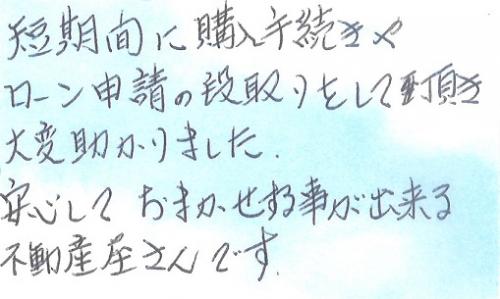 短期間に購入手続きや
ローン申請の段取りをして頂き
大変助かりました.
安心しておまかせする事が出来る
不動産屋さんです.